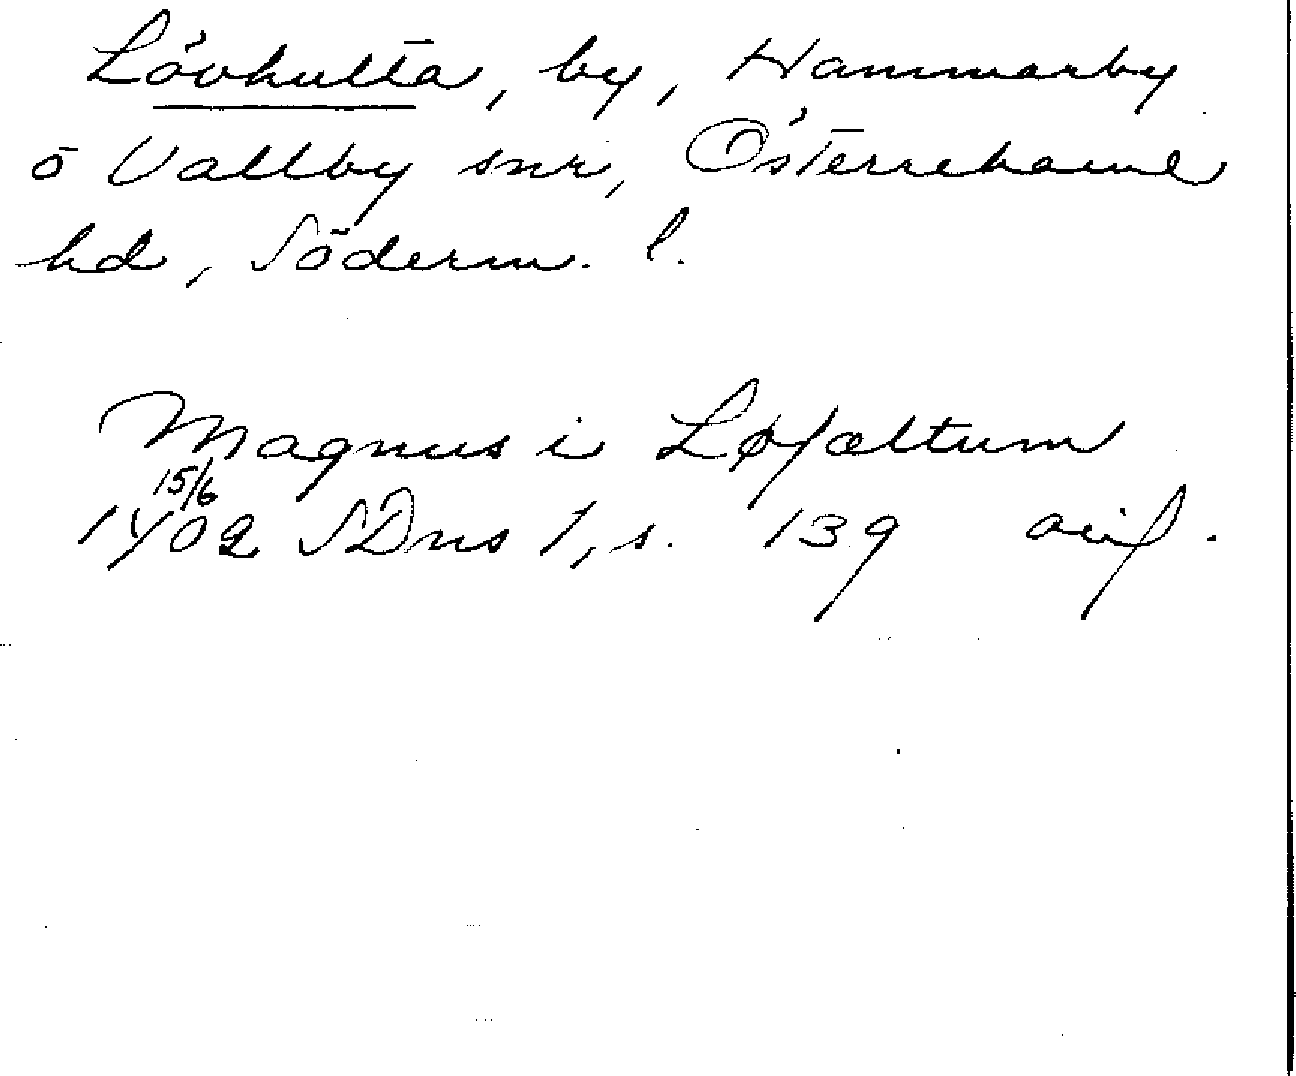 Lövhulta, by, Hammarby
o Vallby snr, Österrekarne
hd, Söderm. l.
Magnus i Løfæltum
15/6
1402 SDns 1, s. 139